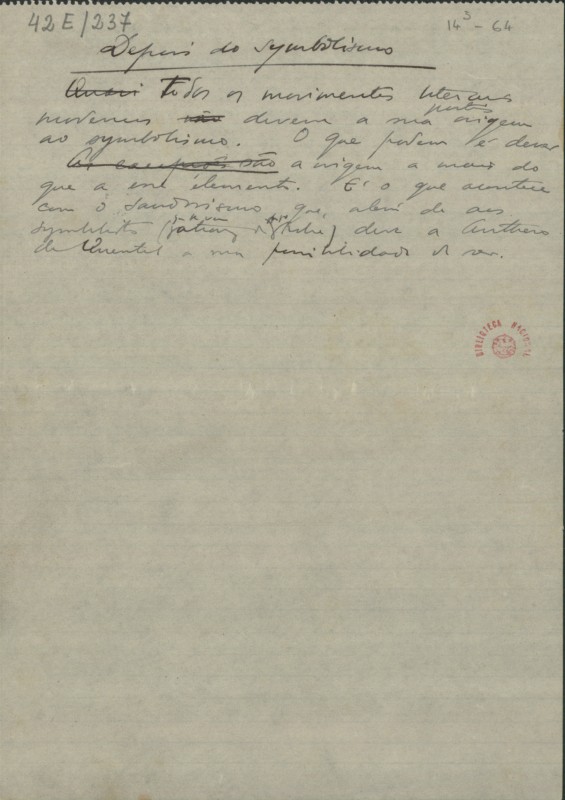 42 E/237
14³ - 64
Depois do symbolismo
Quasi Todos os movimentos literarios
modernos não devem a sua origem
ao symbolismo. O que podem é dever
são a origem a mais do
que a esse elemento. É o que acontece
com o que, além de aos
symbolistas deve a Anthero
de Quental a sua possibilidade de ser.
BIBLIOTECA NACIONAL